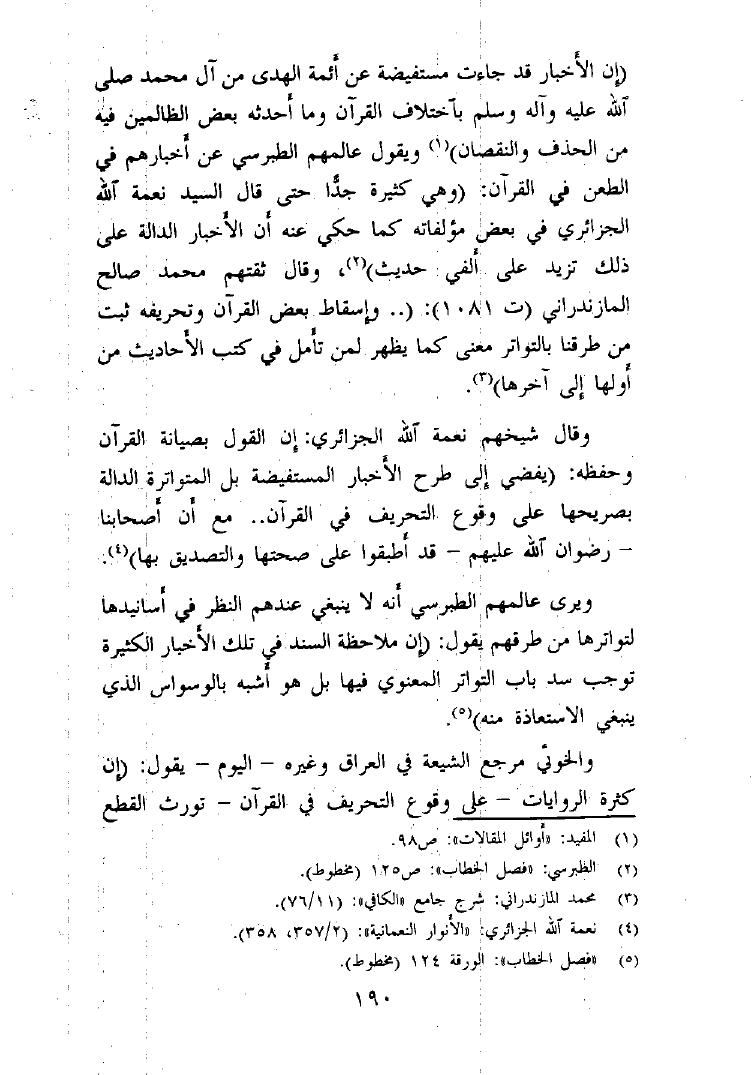 (إن الأخبار قد جاءت مستفيضة عن أئمة الهدى من آل محمد صلى
الله عليه وآله وسلم بآختلاف القرآن وما أحدثه بعض الظالمين فيه
من الحذف والنقصان)(١) ويقول عالمهم الطبرسي عن أخبارهم في
الطعن في القرآن: (وهي كثيرة جدًّا حتى قال السيد نعمة الله
الجزائري في بعض مؤلفاته كما حكي عنه أن الأخبار الدالة على
ذلك تزيد على ألفي حديث)(٢)، وقال ثقتهم محمد صالح
المازندراني (ت ١٠٨١): (.. وإسقاط بعض القرآن وتحريفه ثبت
من طرقنا بالتواتر معنى كما يظهر لمن تأمل في كتب الأحاديث من
أولها إلى آخرها)(٣).
وقال شيخهم نعمة الله الجزائري: إن القول بصيانة القرآن
وحفظه: (يفضي إلى طرح الأخبار المستفيضة بل المتواترة الدالة
بصريحها على وقوع التحريف في القرآن.. مع أن أصحابنا
– رضوان الله عليهم – قد أطبقوا على صحتها والتصديق بها)(٤).
ويرى عالمهم الطبرسي أنه لا ينبغي عندهم النظر في أسانيدها
لتواترها من طرقهم يقول: (إن ملاحظة السند في تلك الأخبار الكثيرة
توجب سد باب التواتر المعنوي فيها بل هو أشبه بالوسواس الذي
ينبغي الاستعاذة منه)(٥).
والخوئيّ مرجع الشيعة في العراق وغيره – اليوم – يقول: (إن
كثرة الروايات – على وقوع التحريف في القرآن – تورث القطع
(١) المفيد: «أوائل المقالات»: ص٩٨.
(٢) الظبرسي: «فصل الخطاب»: ص١٢٥ (مخطوط).
(٣) محمد المازندراني: شرح جامع «الكافي»: (٧٦/١١).
(٤) نعمة الله الجزائري: «الأنوار النعمانية»: (٣٥٧/٢، ٣٥٨).
(٥) «فصل الخطاب»: الورقة ١٢٤ (مخطوط).
١٩٠